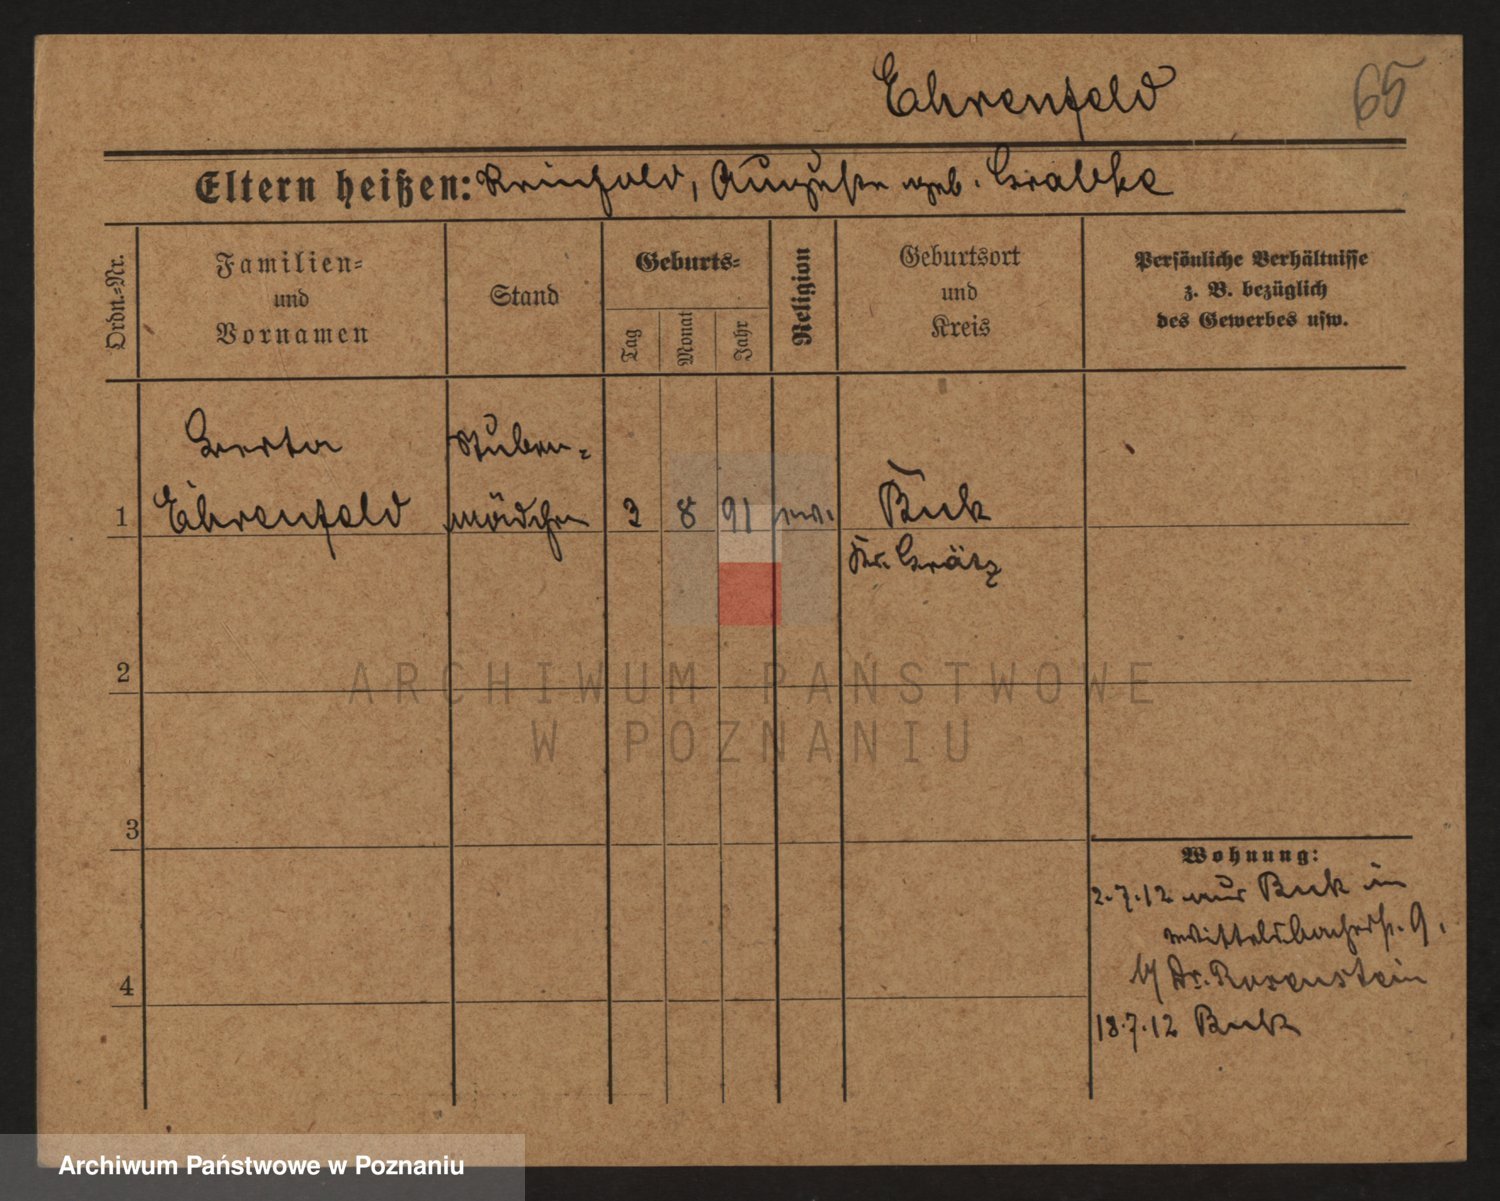 Ehrenfeld
65
Eltern heißen: Reinhold, Auguste geb. Grabke
Ordn.-Nr.
Familien-
und
Vornamen
Stand
Geburts-
Tag
Monat
Jahr
Religion
Geburtsort
und
Kreis
Persönliche Verhältnisse
z. B. bezüglich
des Gewerbes usw.
Gerta Stuben-
1 Ehrenfeld mädchen 3 8 91 ev. Buk
Kr. Grätz
2
3
4
Wohnung:
2.7.12 aus Buk in
Wittelsbacherst. 9.
b/ Dr. Rosenstein
18.7.12 Buk
ARCHIWUM PAŃSTWOWE
W POZNANIU
Archiwum Państwowe w Poznaniu